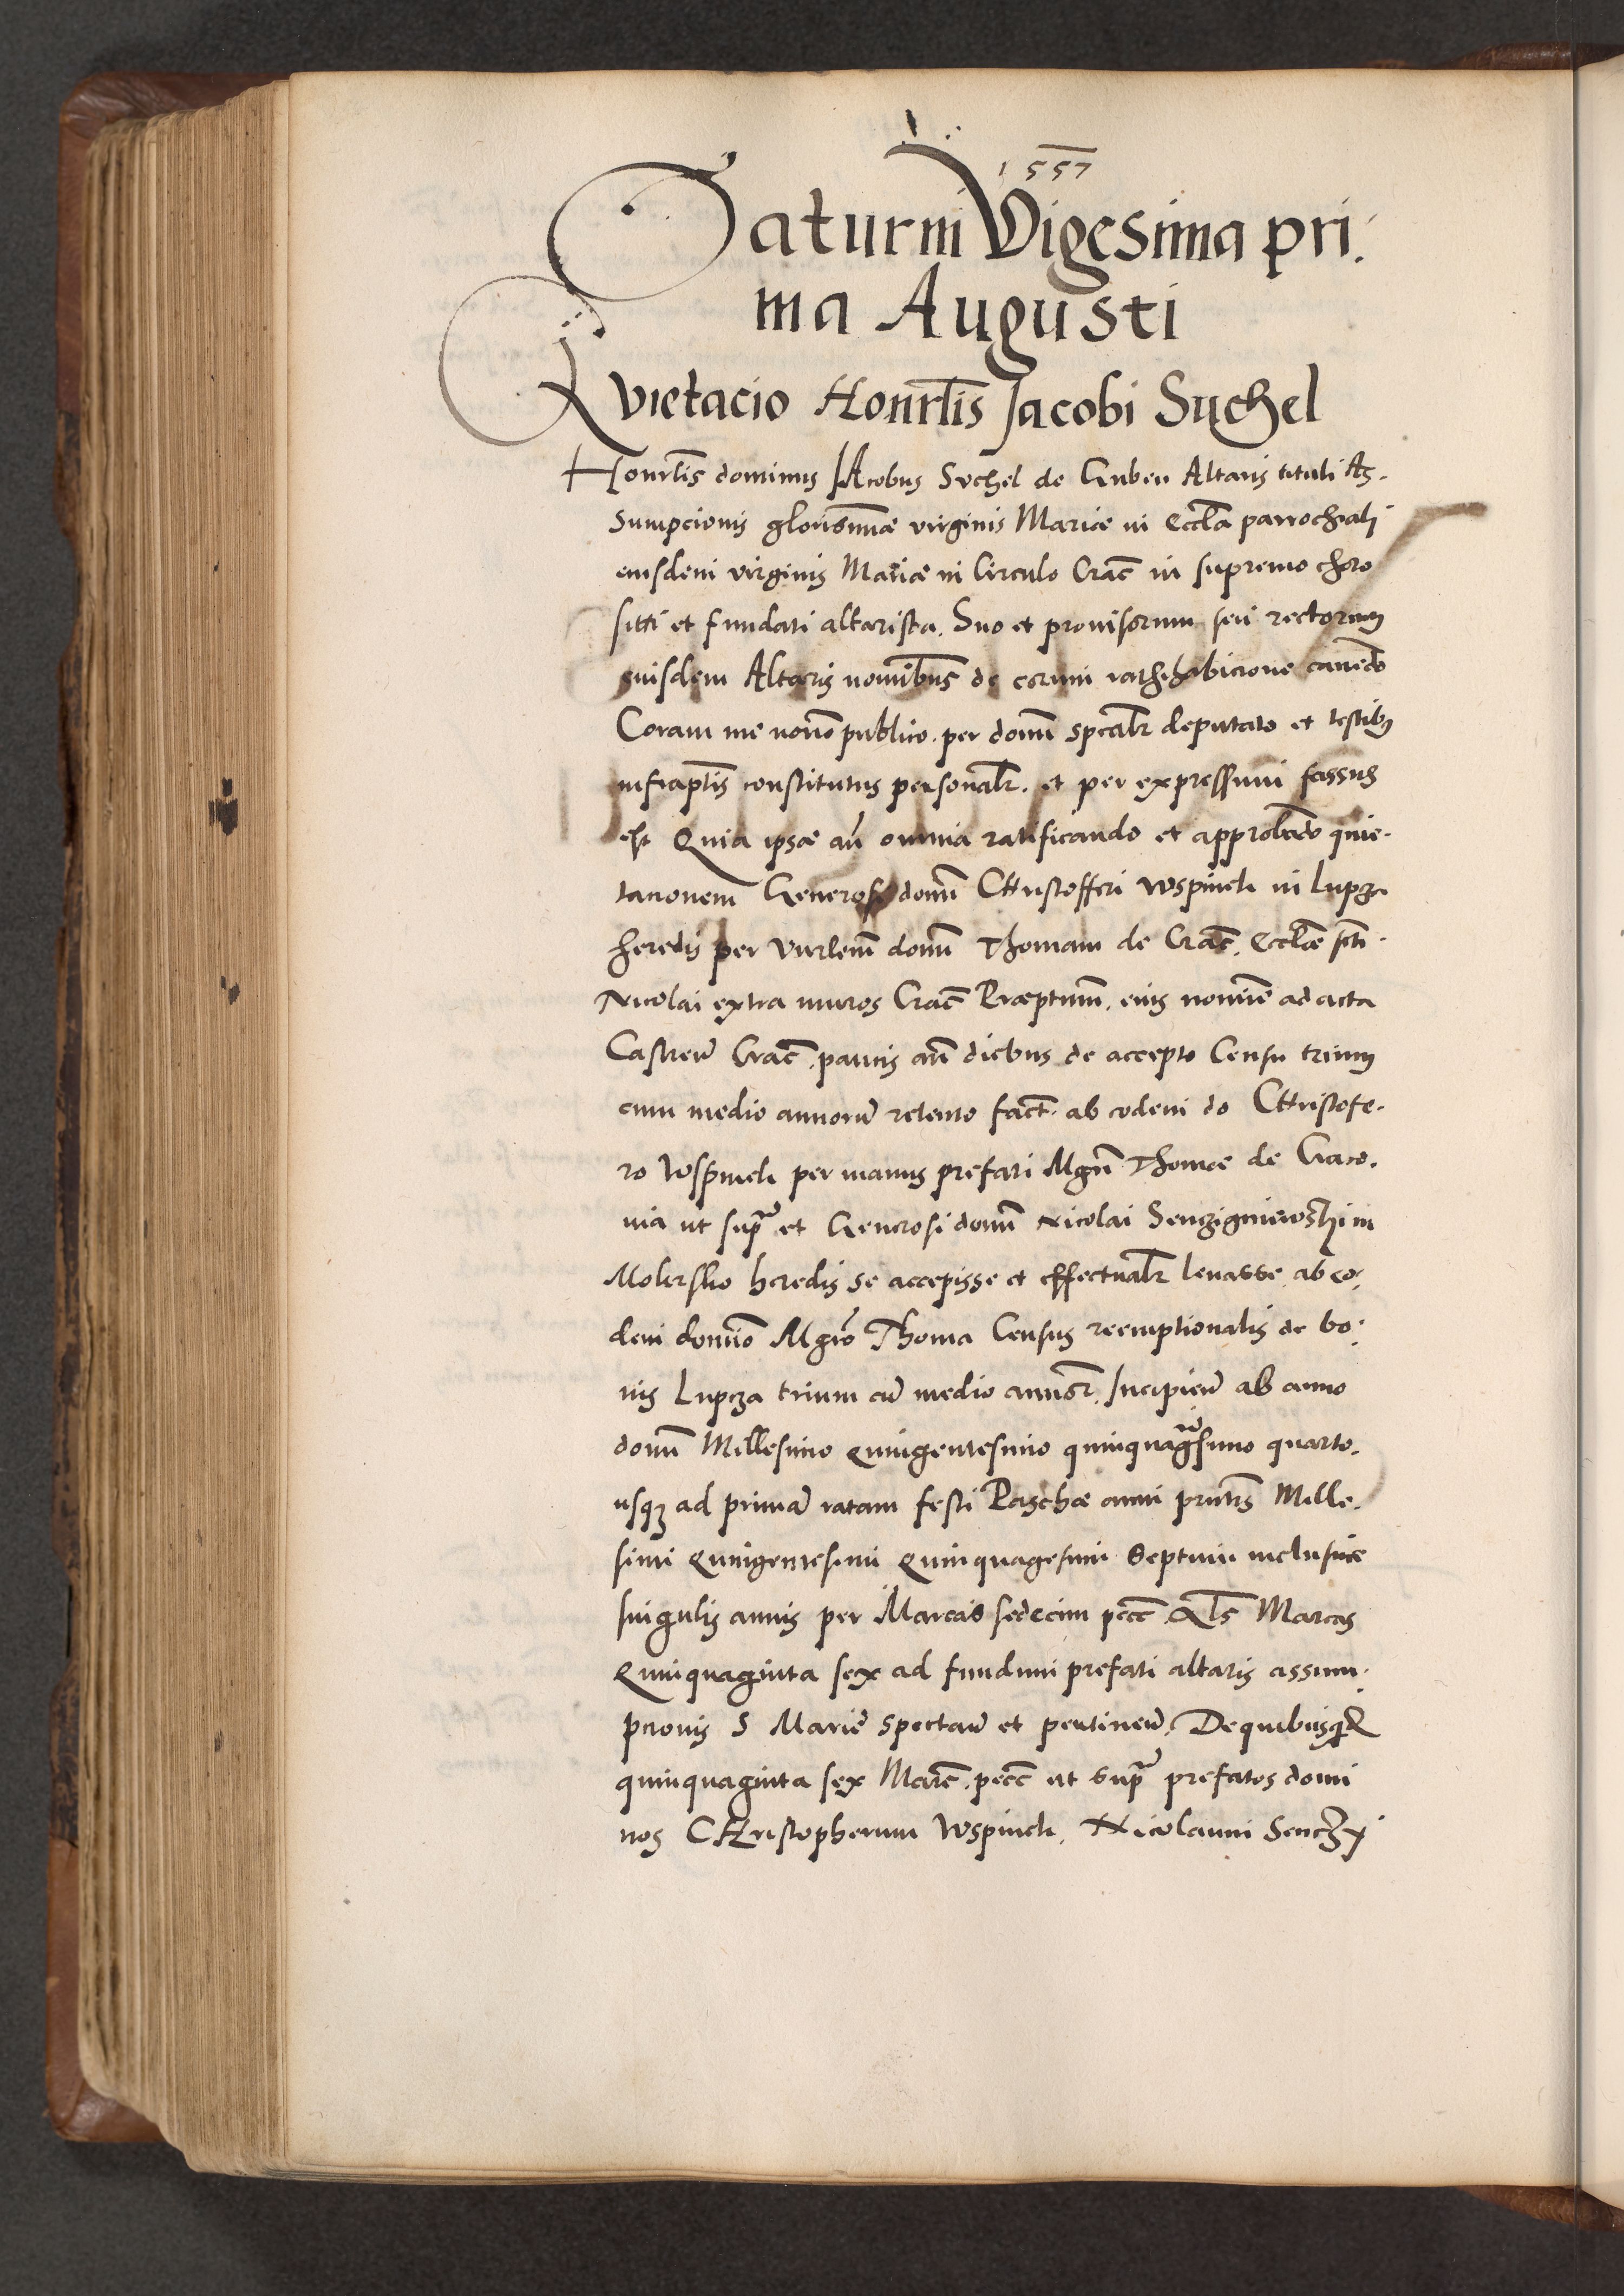 1557
Saturni Vigesima pri-
ma Augusti
Quietacio Honrlis Jacobi Suchel
Honrlis dominus JAcobus Suchel de Guben Altaris tituli As-
sumpcionis glorissimæ virginis Mariæ in Eccla parrochiali
eiusdem virginis Mariæ in Circulo Crac in supremo choro
siti et fundati altarista. Suo et prouisorum seu rectorum
eiusdem Altaris nominibus de eorum rathihabicione cauendo
Coram me norio publico per domi spealr deputato et testibus
infraptis constitutus personalr. et per expressum fassus
est Quia ipse an omnia ratificando et approbando quie-
tacionem Generosi domi CHristofferi Wspinek in Lupcza
heredis per Vnrlem domi Thomam de Crac. Ecclæ scti
Nicolai extra muros Crac Præptum. eius nomine ad acta
Castren Crac. paucis an diebus de accepto Censu trium
cum medio annorum retento fact. ab eodem do CHristofe-
ro Wspinek per manus prefati Mgri Thomæ de Craco-
uia ut supra et Generosi domi Nicolai Senczigniewski in
Mokrsko heredis se accepisse et effectualr leuasse ab eo-
dem domino Mgro Thoma Census reemptionalis de bo-
nis Lupcza trium cum medio annor. Incipien ab anno
domi Millesimo Quingentesimo quinquagesimo quarto.
usque ad primam ratam festi Paschæ anni prntis Mille-
simi Quingentesimi Quinquagesimi Septimi inclusiue
singulis annis per Marcas sedecim pecc Qls Marcas
Quinquaginta sex ad fundum prefati altaris assum-
pcionis S Mariæ spectan et pertinen. De quibusquid
quinquaginta sex Marc. pecc ut supra prefatos domi
nos CHristopherum Wspinek. Nicolaum Senczy